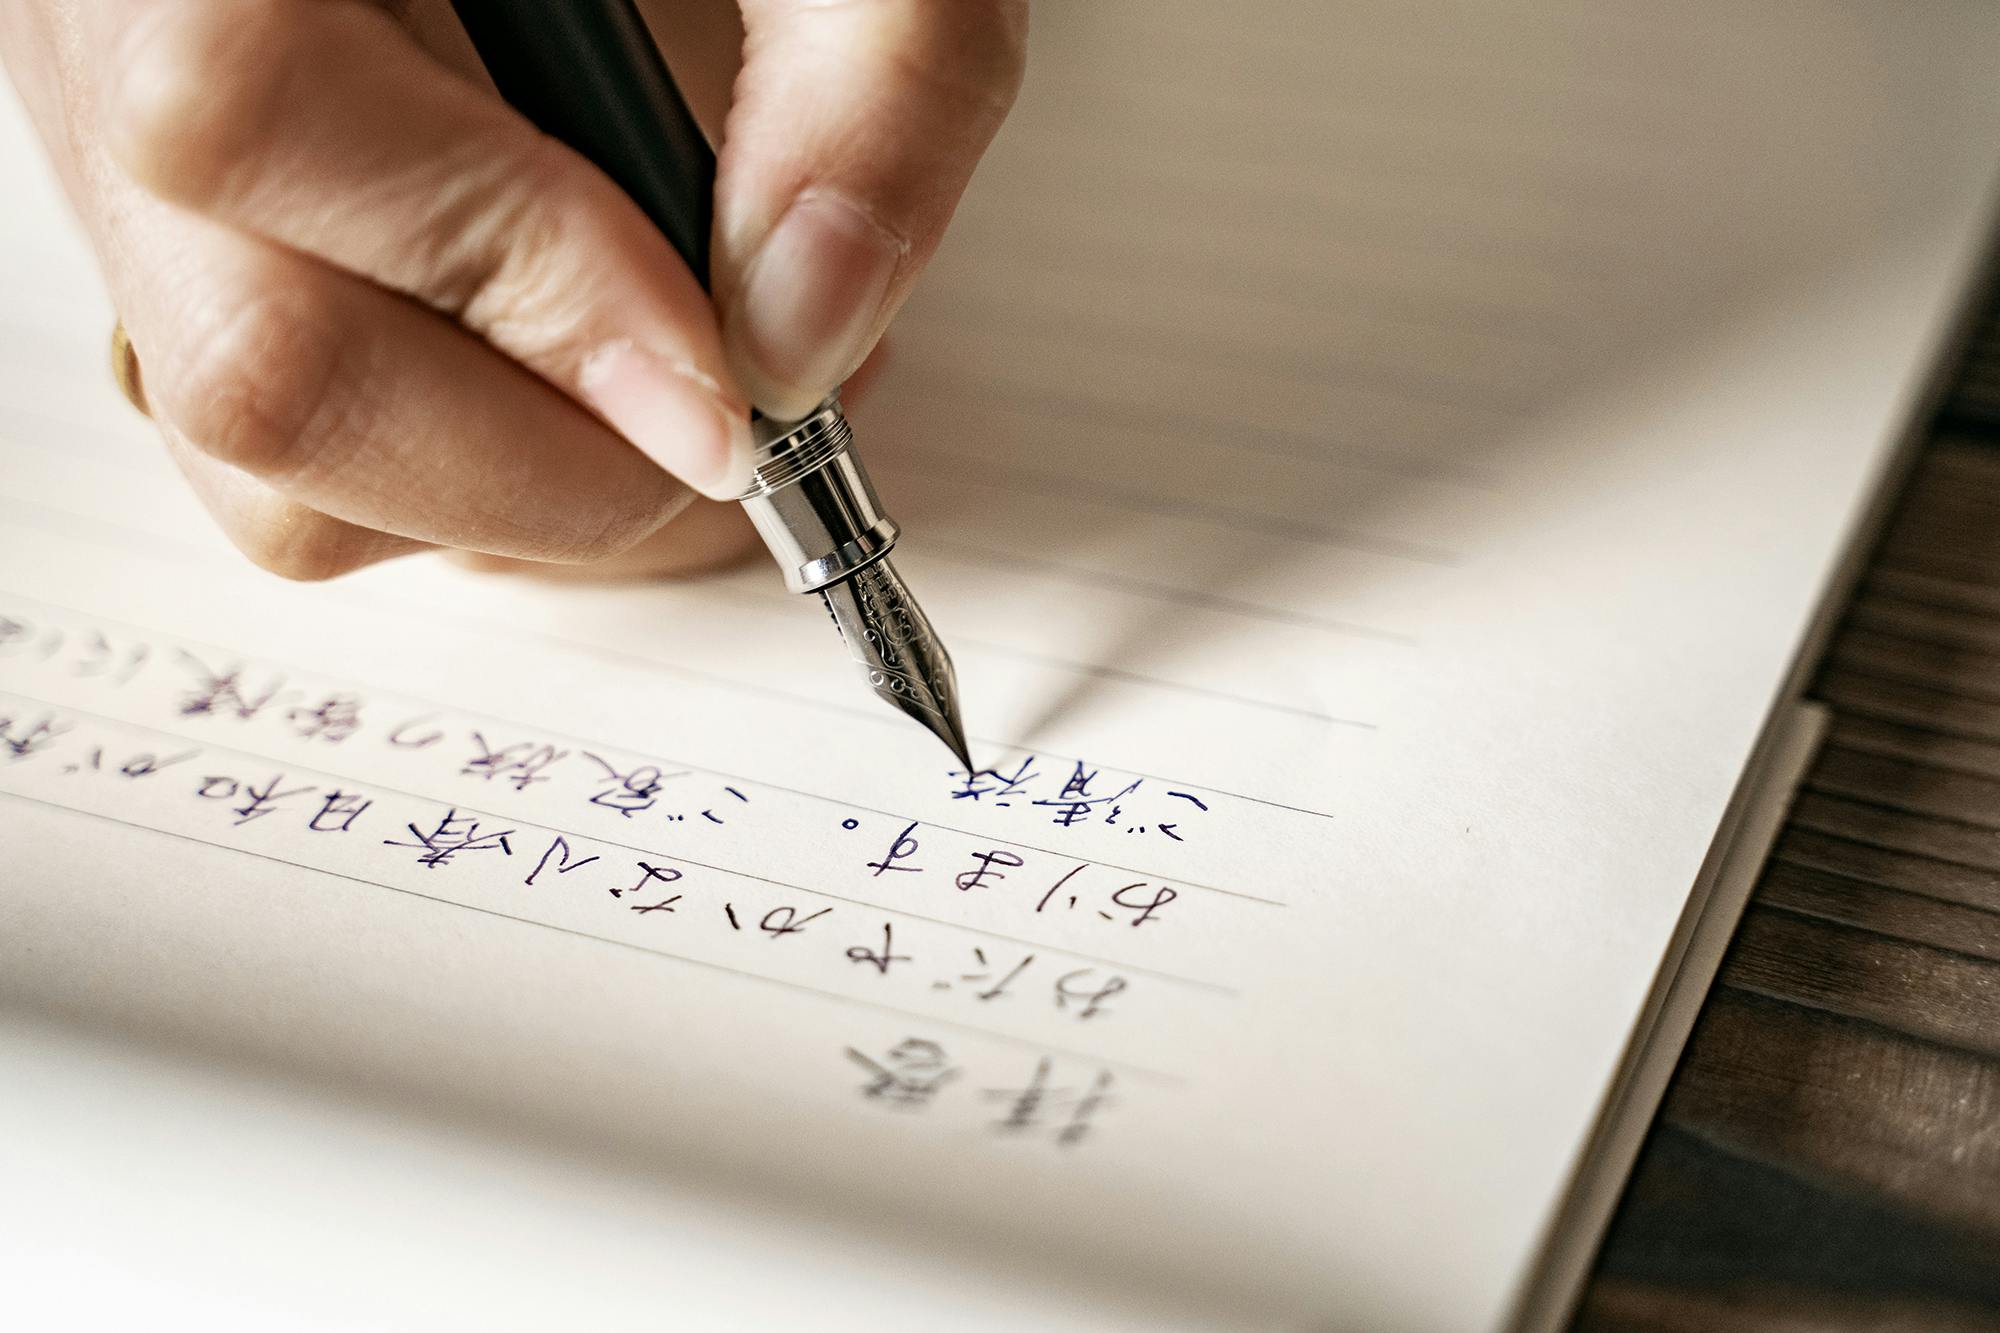 拝啓
おだやかな小春日和が
おります。ご家族の皆様には
ご清祥